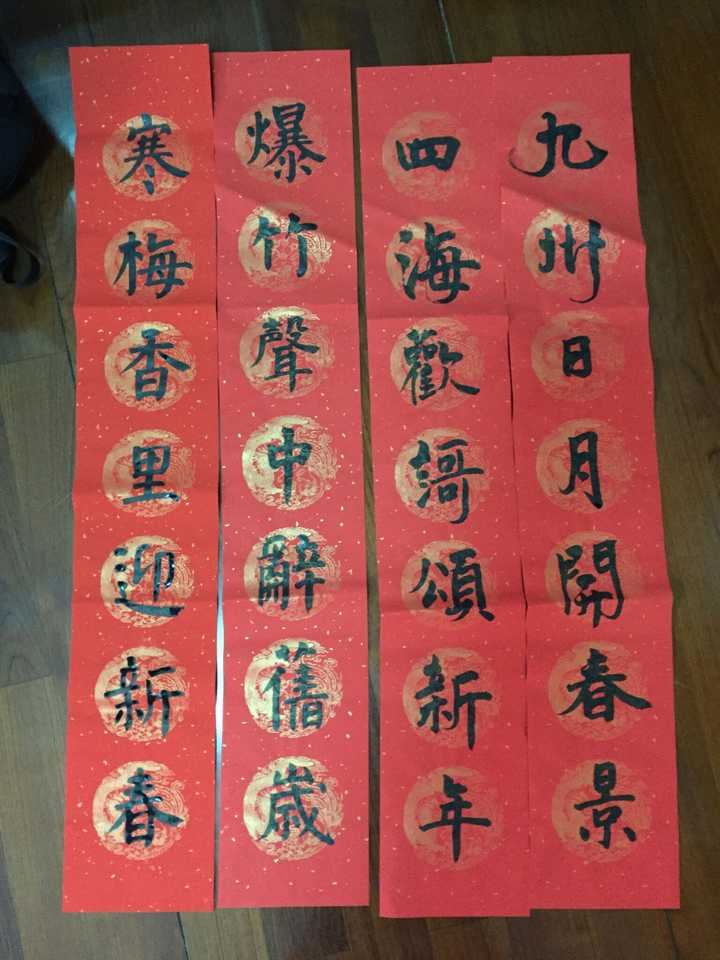 九州日月開春景
四海歡謌頌新年
爆竹聲中辭舊歲
寒梅香里迎新春